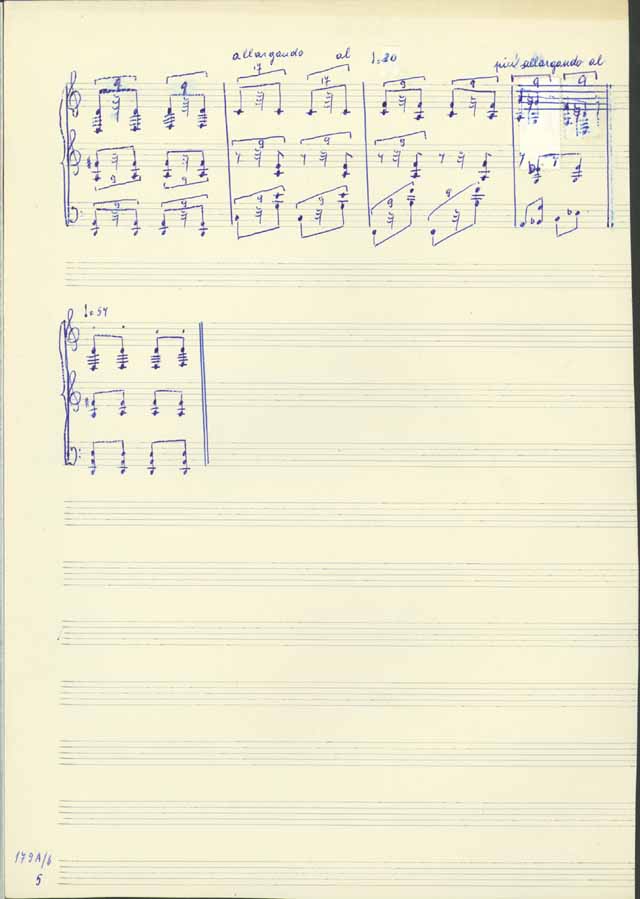 allargando al ♩=20 più allargando al
9 9 17 17 9 9 9 9
9 9 9 9 9
9 9 9 9 9 9
♩=54
179A/6
5